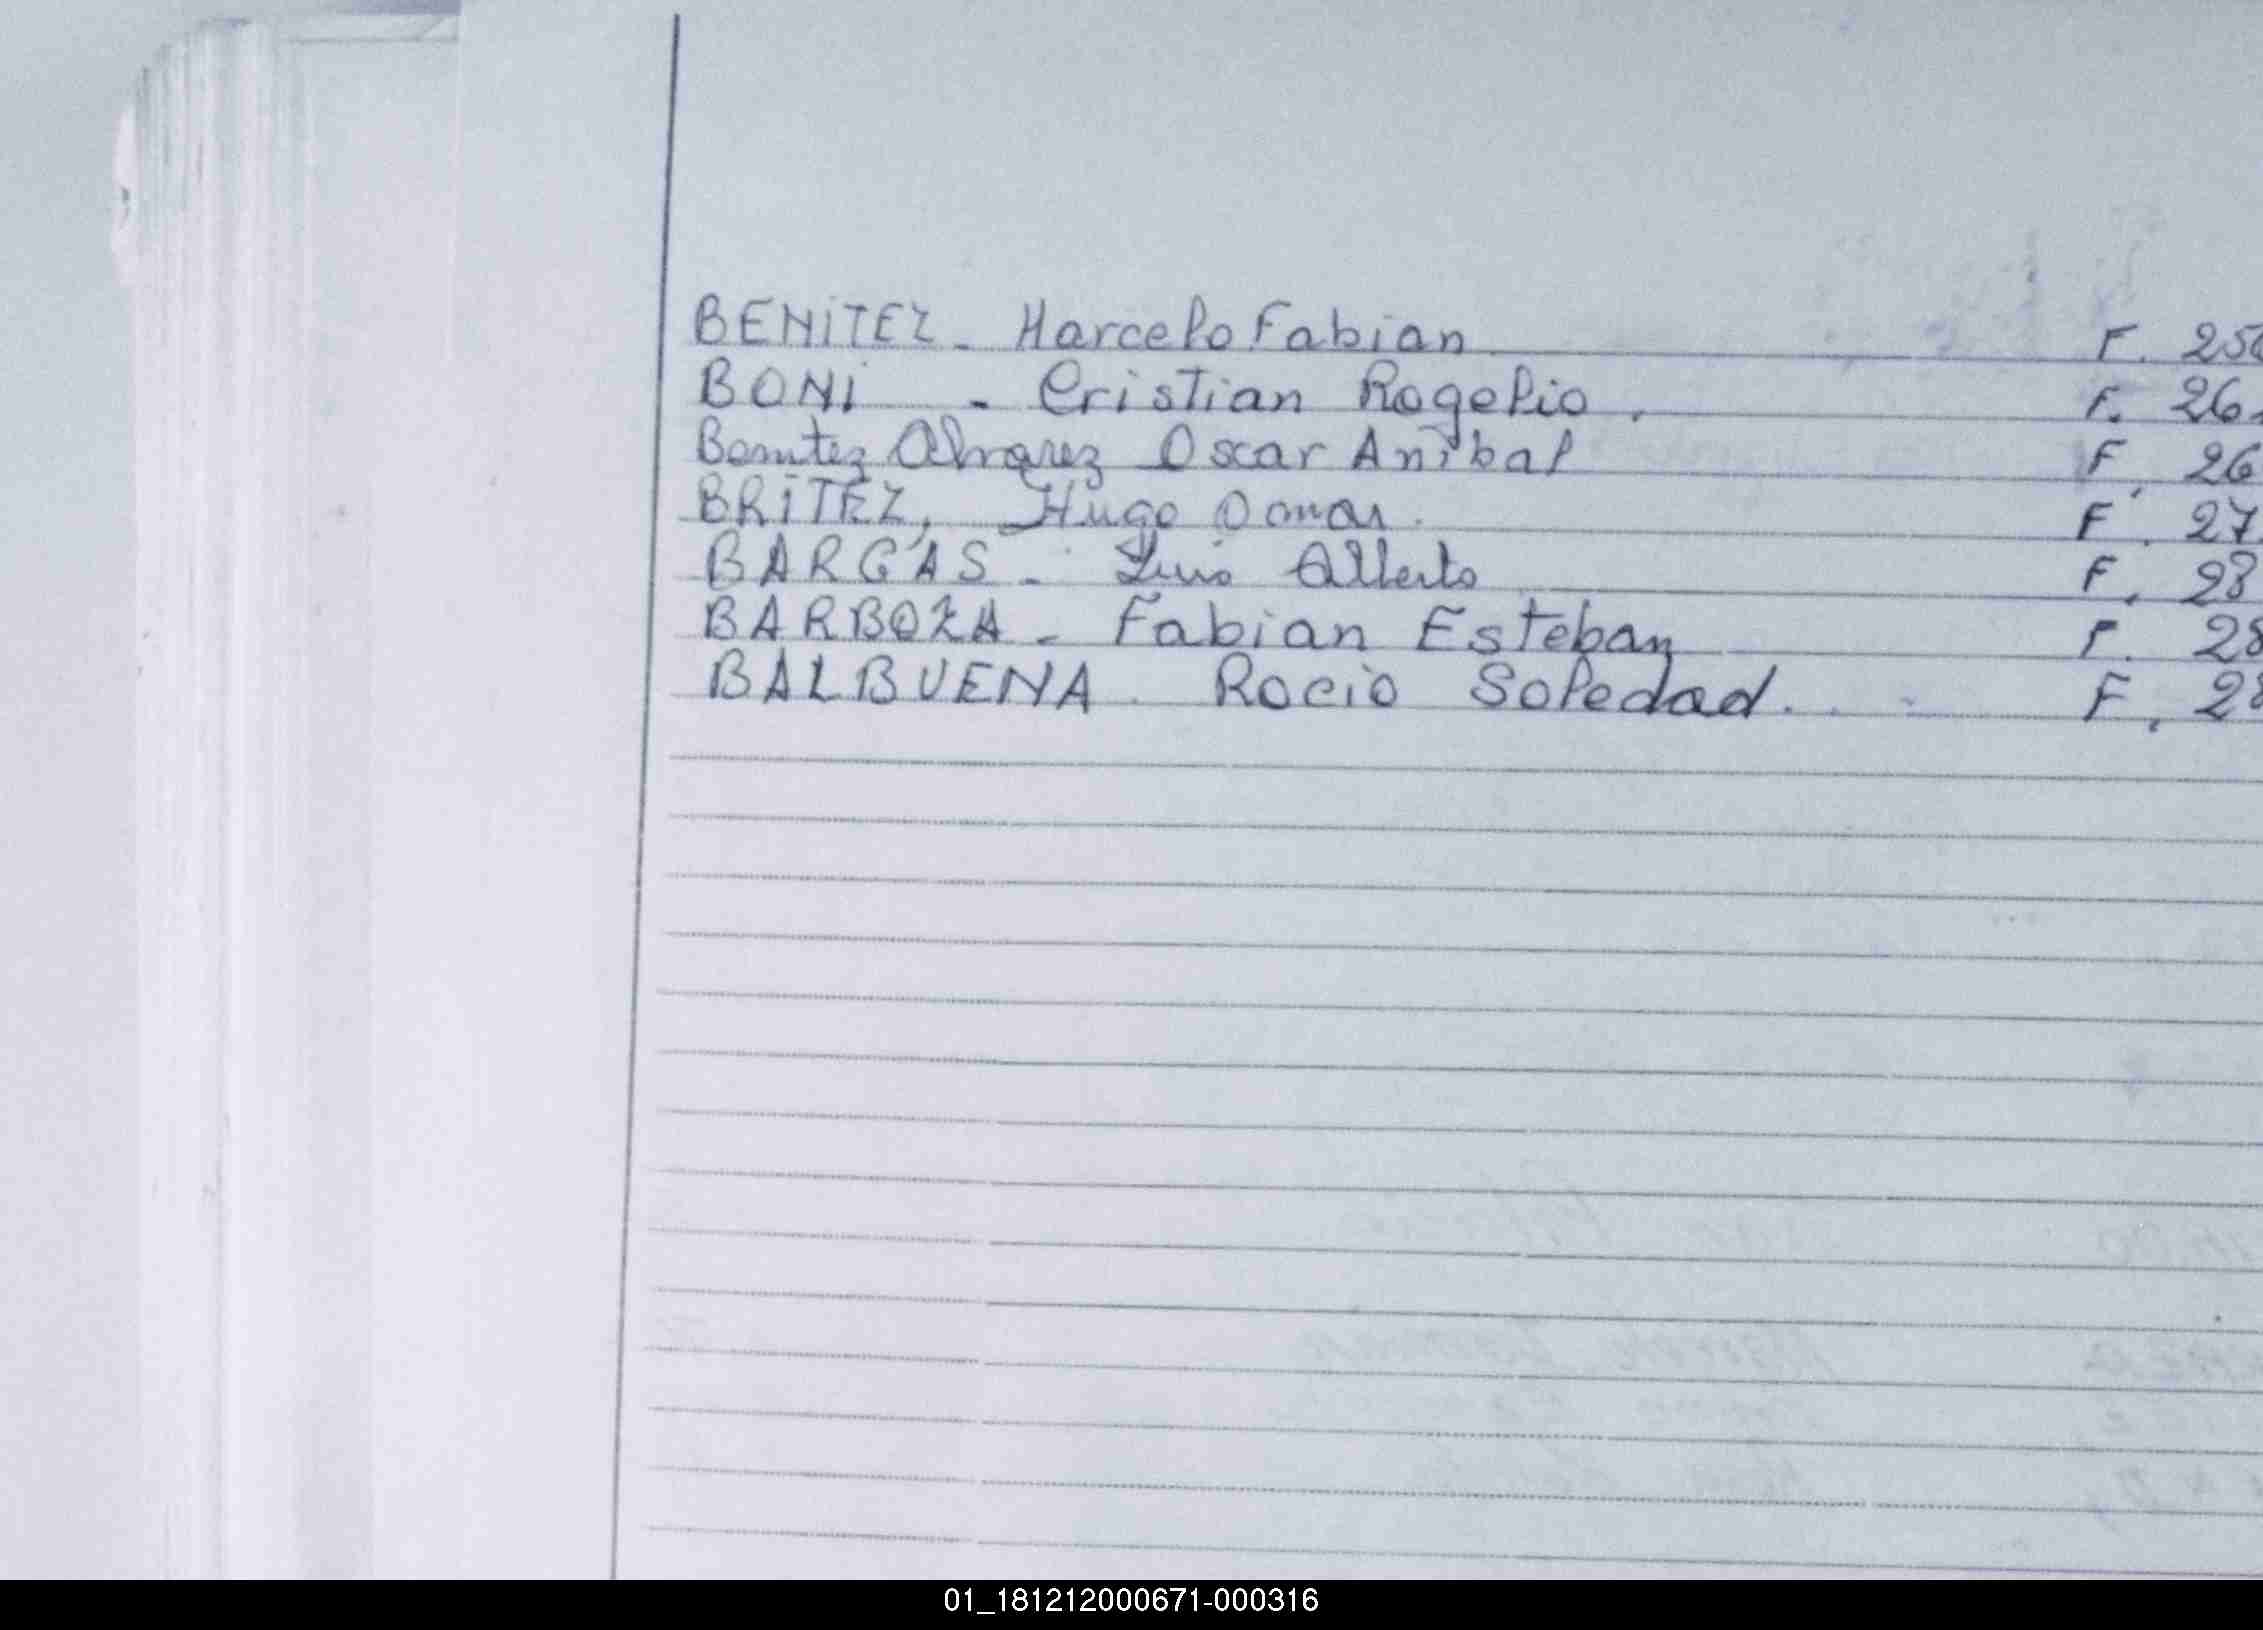 BENiTEZ - Marcelo Fabian F. 250
BONi - Cristian Rogelio. F. 26
Benitez Alvarez Oscar Anibal F. 26
BRiTEZ, Hugo Omar. F. 27
BARGAS - Luis Alberto F. 28
BARBOZA - Fabian Esteban F. 28
BALBUENA. Rocio Soledad. F. 28
01_181212000671-000316